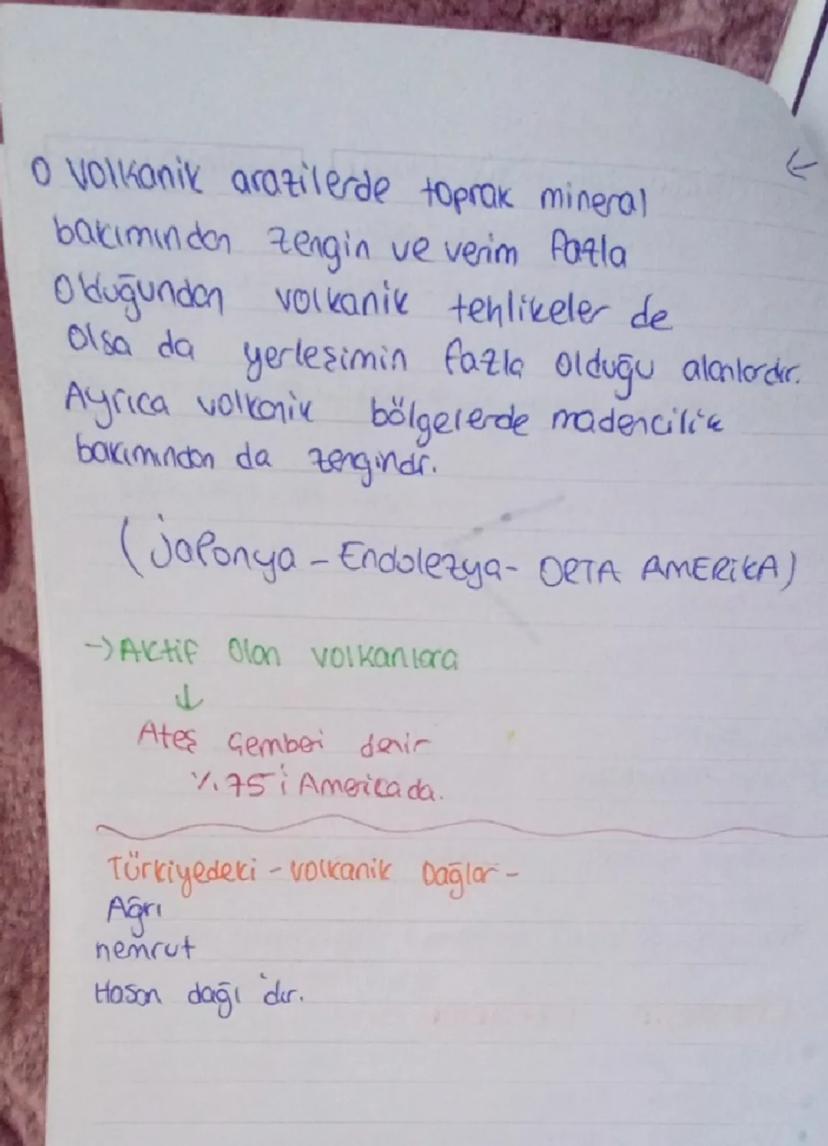 o Volkanik arazilerde toprak mineral
bakımından zengin ve verim fazla
Olduğundan volkanik tehlikeler de
Olsa da yerleşimin fazla olduğu alanlardır.
Ayrıca volkanik bölgelerde madencilik
bakımından da zengindr.
(japonya - Endolezya - ORTA AMERİKA)
→ Aktif Olan volkanlara
↓
Ateş çemberi denir
%.75'i Americada.
Türkiyedeki - volkanik Dağlar -
Ağrı
nemrut
Hasan dağı 'dır.
←